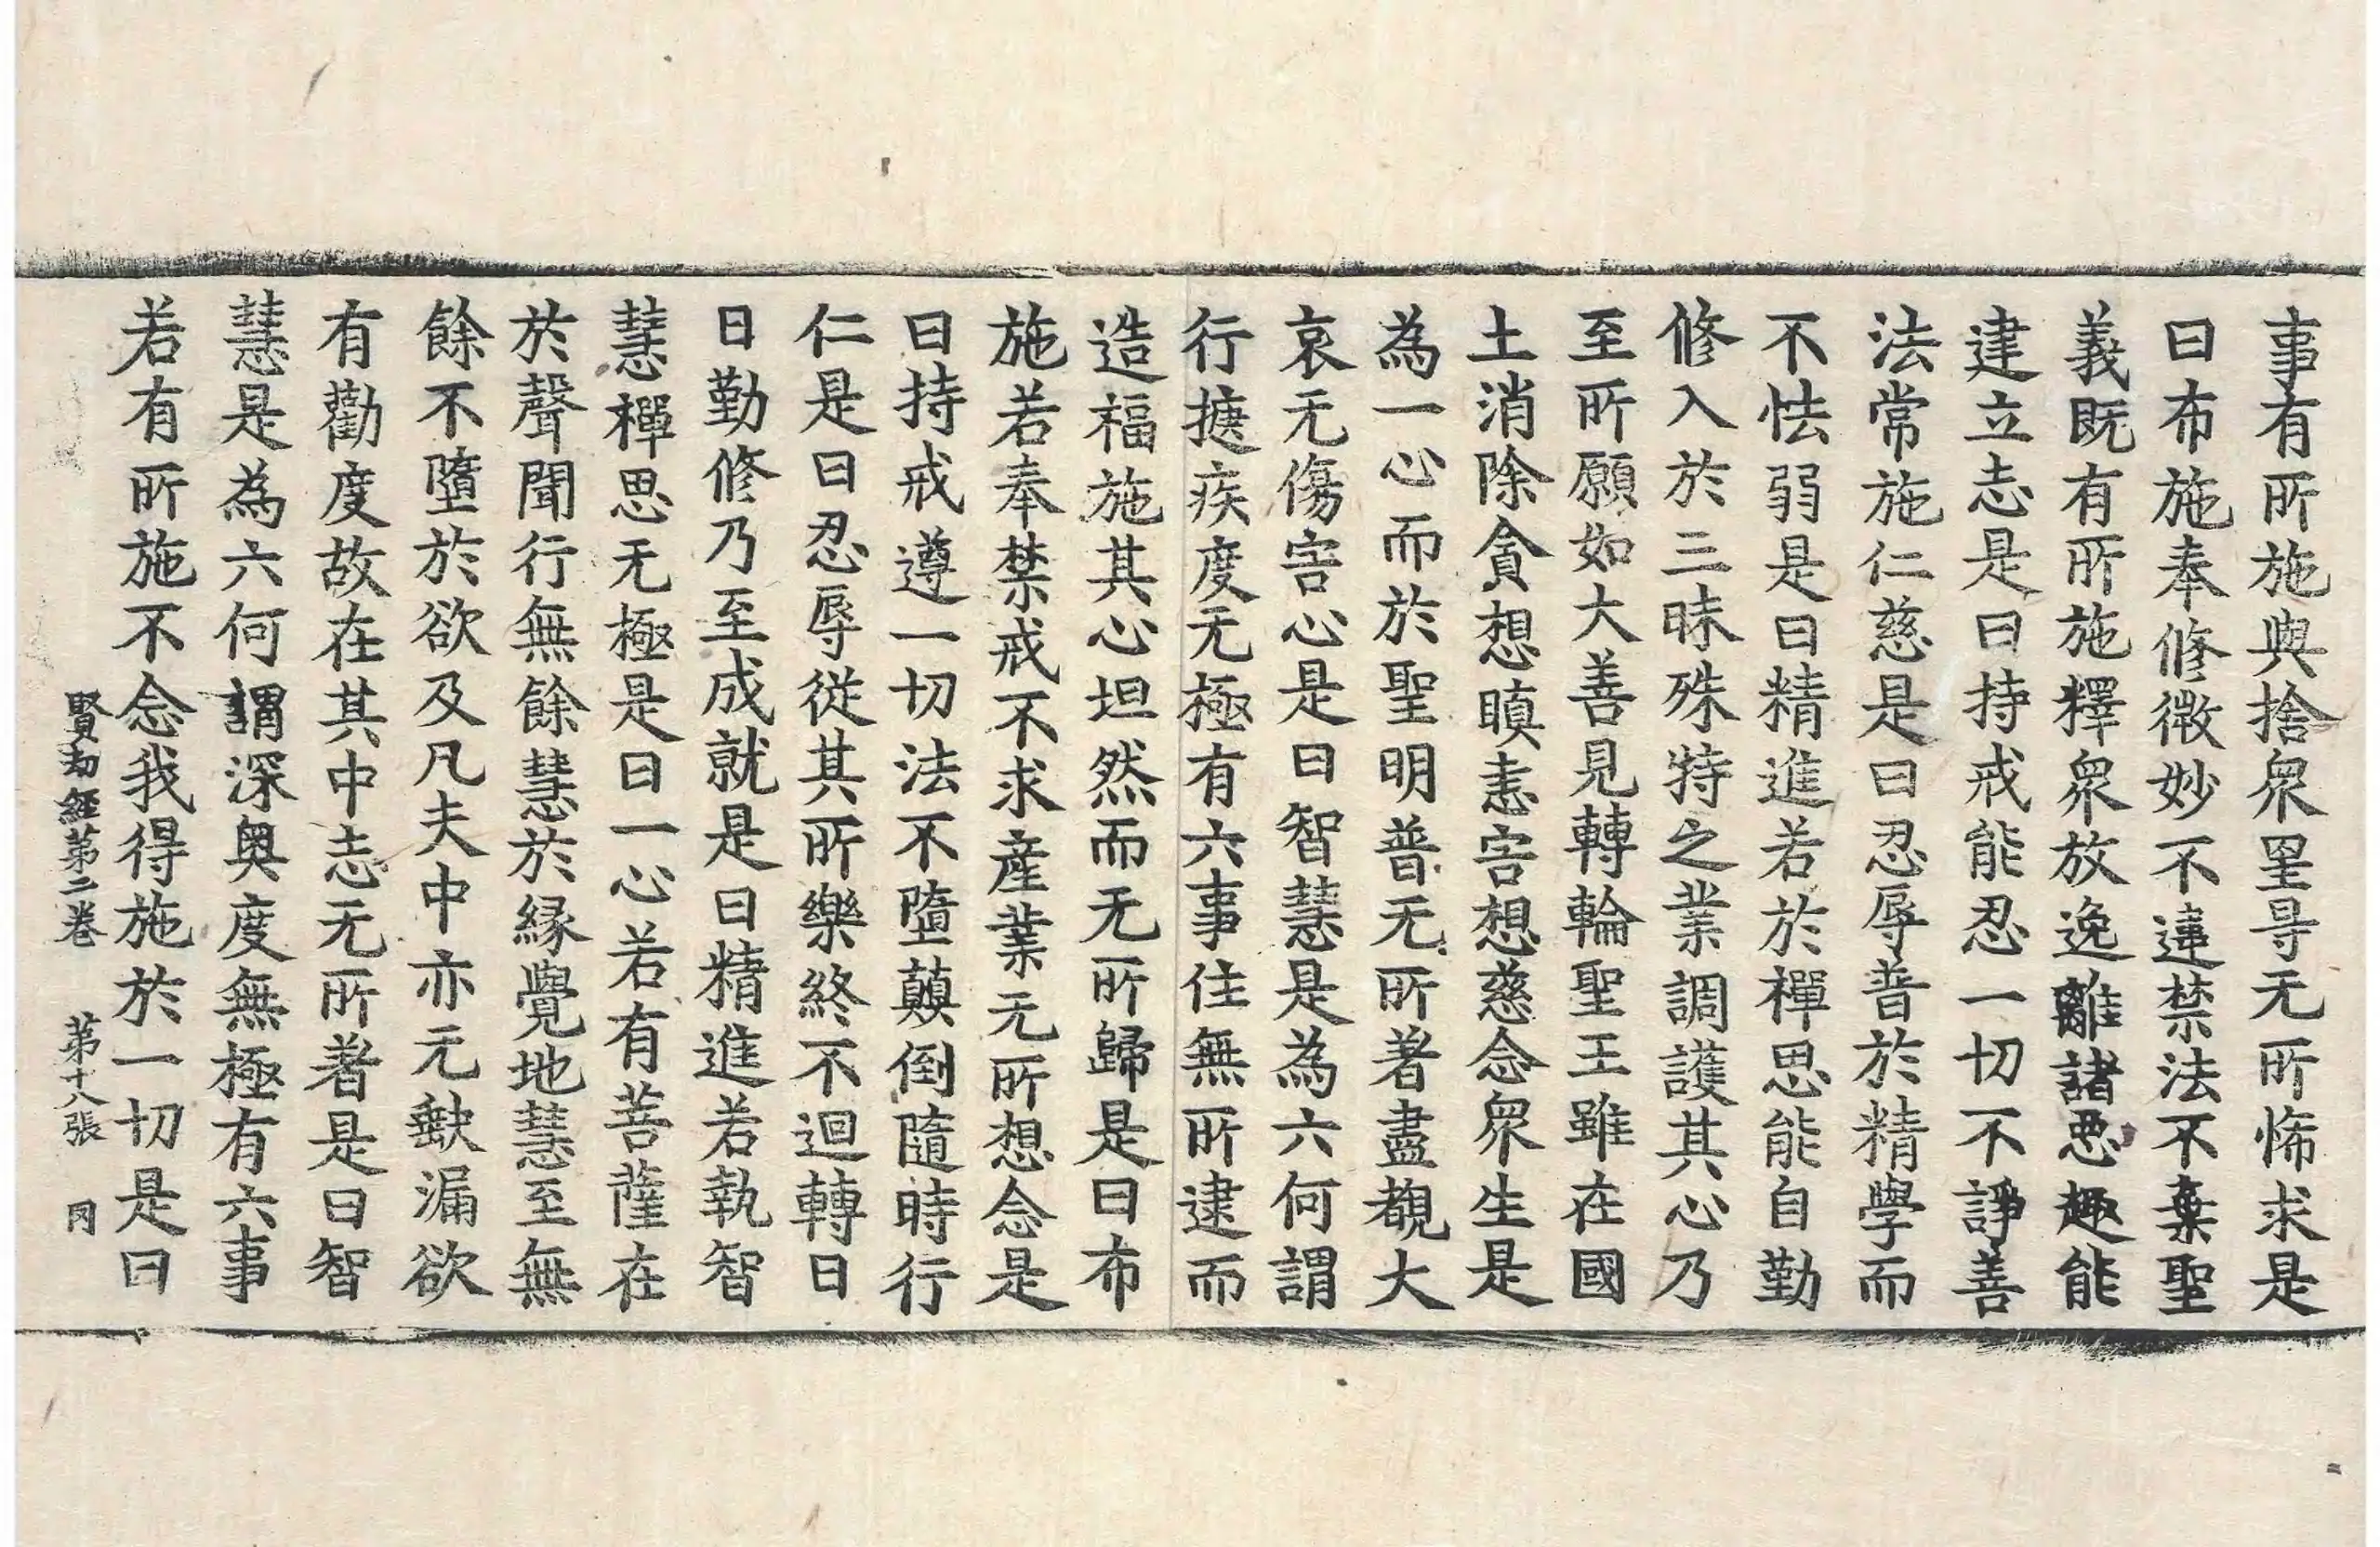 事有所施與捨衆罣㝵无所悕求是
曰布施奉修微妙不違禁法不棄聖
義既有所施釋衆放逸離諸惡趣能
建立志是曰持戒能忍一切不諍善
法常施仁慈是曰忍辱普於精學而
不怯弱是曰精進若於禪思能自勤
修入於三昧殊特之業調護其心乃
至所願如大善見轉輪聖王雖在國
土消除貪想瞋恚害想慈念衆生是
為一心而於聖明普无所著盡覩大
哀无傷害心是曰智慧是為六何謂
行㨪疾度无極有六事住無所逮而
造福施其心坦然而无所歸是曰布
施若奉禁戒不求產業无所想念是
曰持戒遵一切法不墮顛倒隨時行
仁是曰忍辱從其所樂終不迴轉日
日勤修乃至成就是曰精進若執智
慧禪思无極是曰一心若有菩薩在
於聲聞行無餘慧於縁覺地慧至無
餘不墮於欲及凡夫中亦无缺漏欲
有勸度故在其中志无所著是曰智
慧是為六何謂深奧度無極有六事
若有所施不念我得施於一切是曰
賢劫經第二卷 第十八張 同